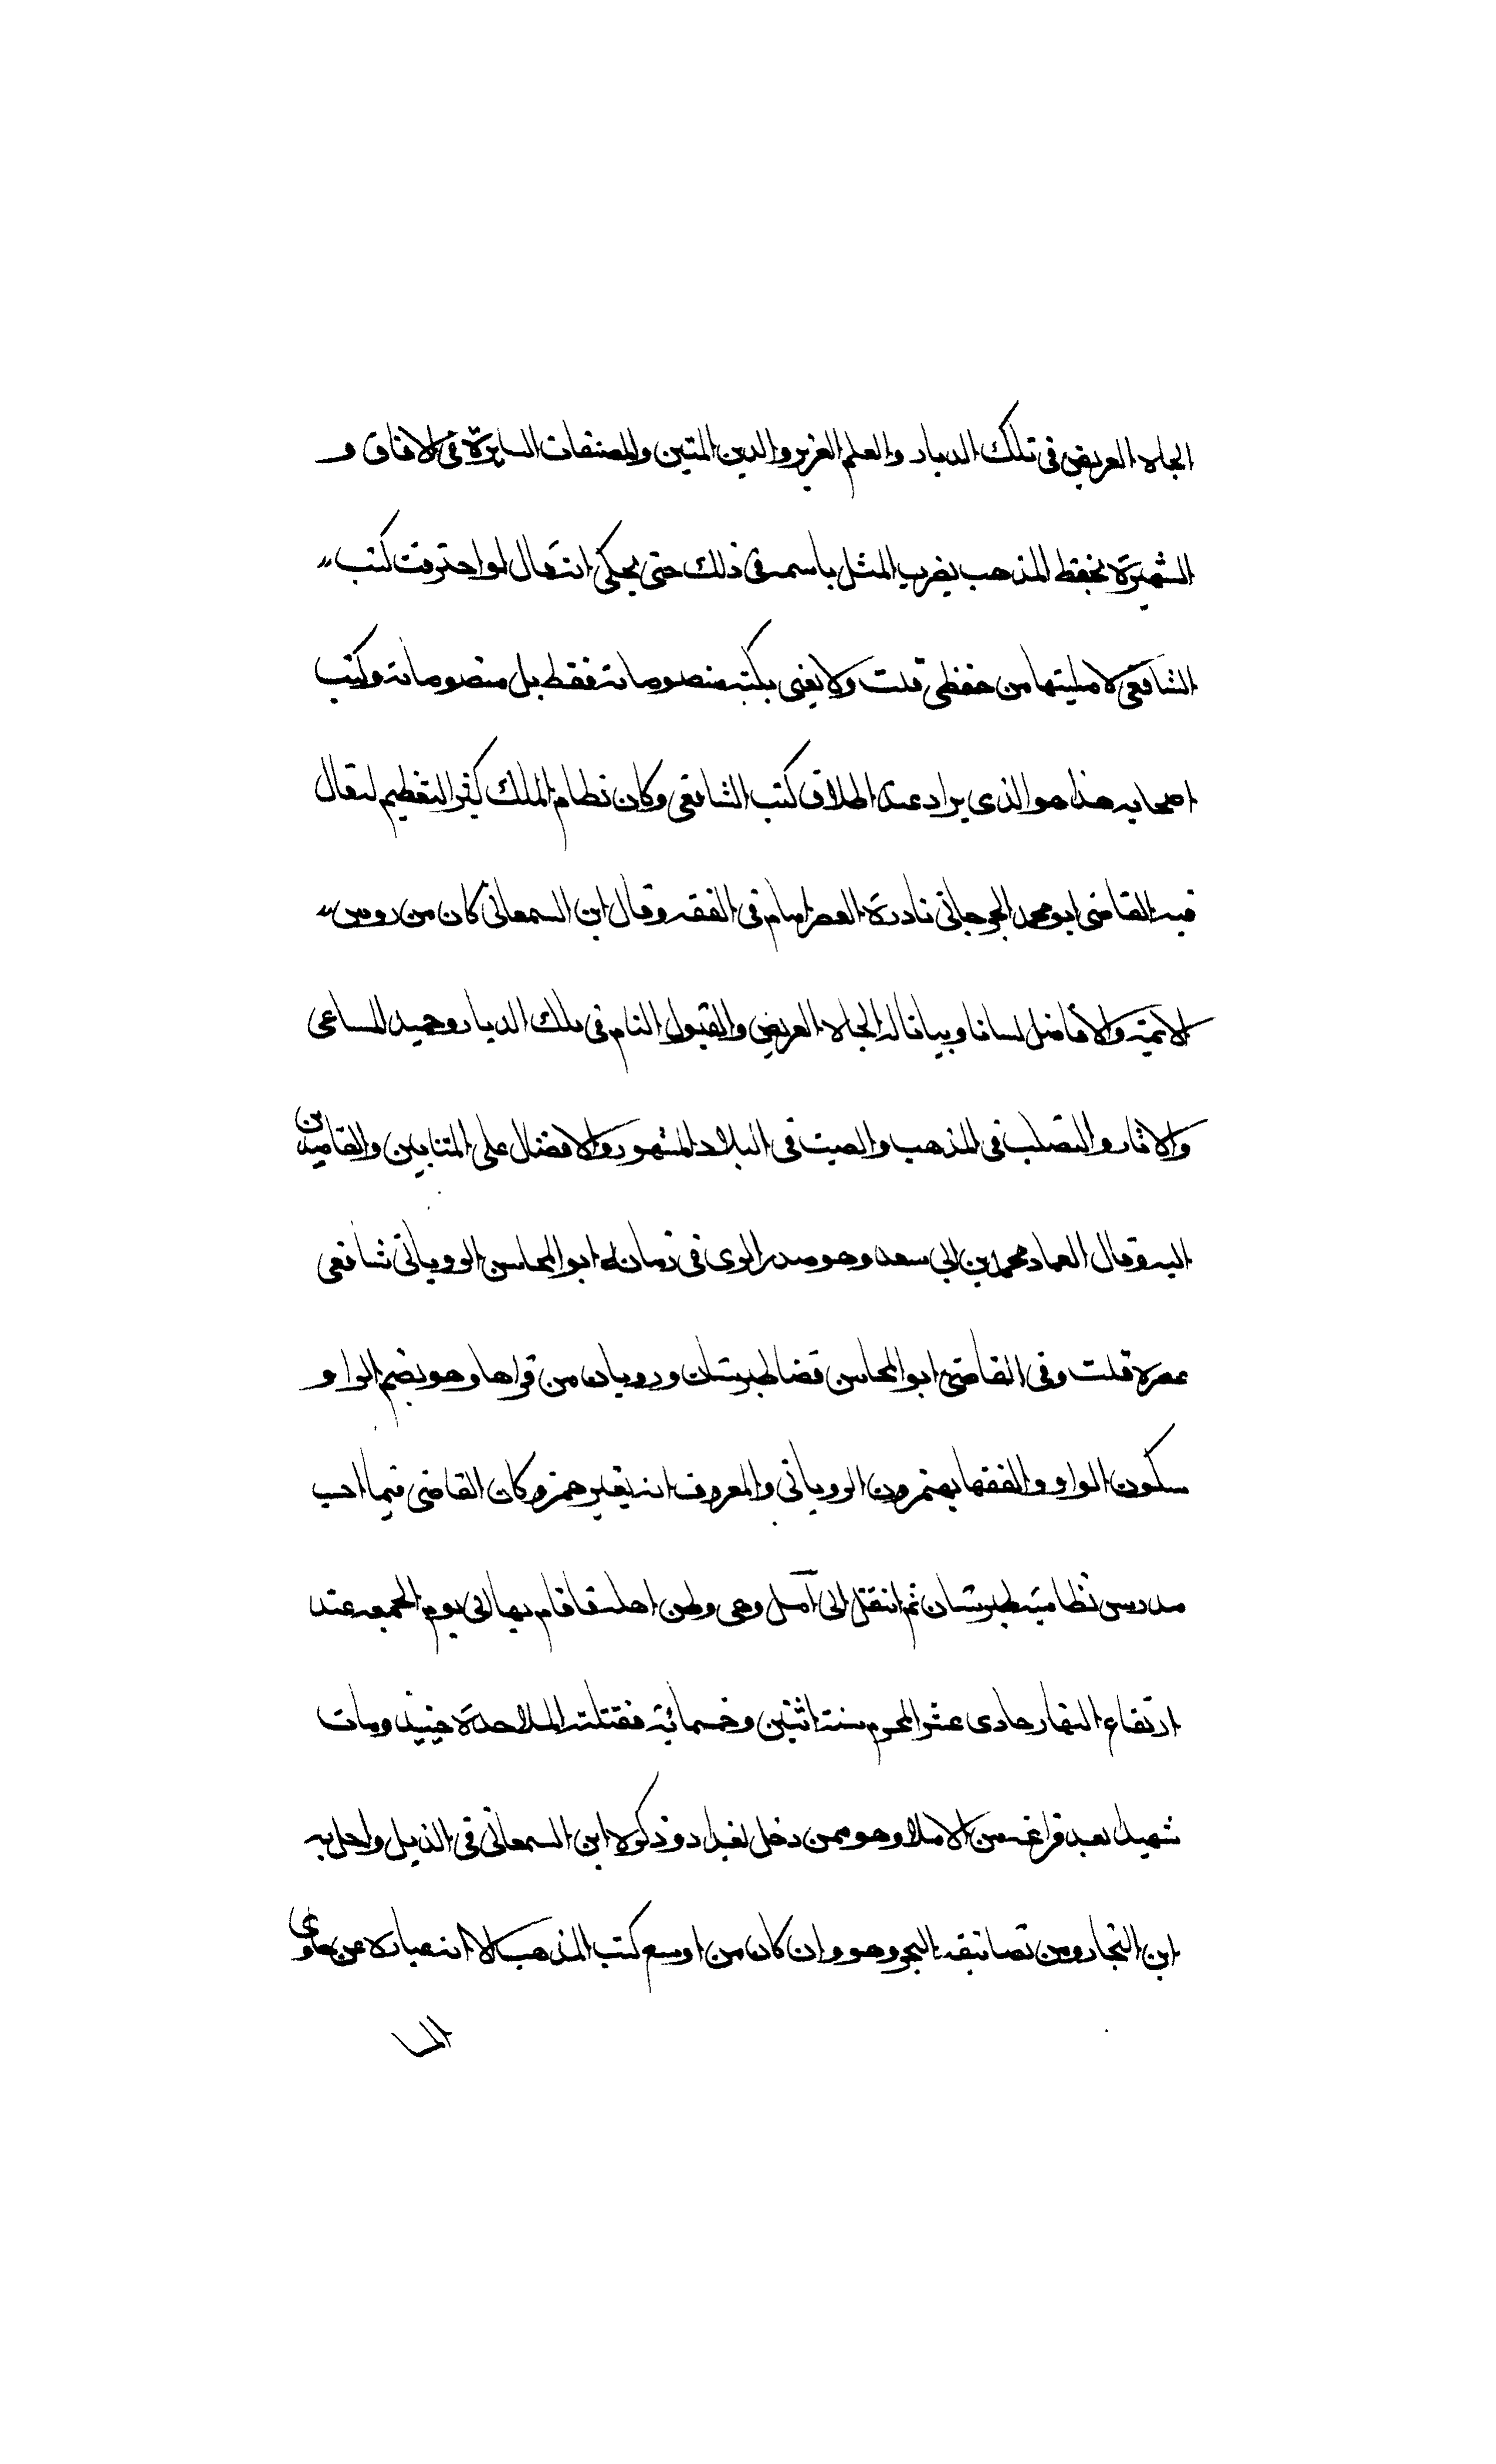 الجاه العريض فى تلك الديار والعلم الغزير والدين المتين والمصنفات السايرة فى الافاق و
الشهيرة بحفظ المذهب يضرب المثل باسمه فى ذلك حتى يحكى انه قال لو احترقت كتب
الشافعى لامليتها من حفظى قلت ولا يعنى بكتبه منصوصاته فقط بل منصوصاته وكتب
اصحابه هذا هو الذى يراد عند اطلاق كتب الشافعى وكان نظام الملك كثير التعظيم له قال
فيه القاضى ابو محمد الجرجانى نادرة العصر امام فى الفقه وقال ابن السمعانى كان من روس
الائمة والافاضل لسانا وبيانا له الجاه العريض والقبول التام فى تلك الديار وحميد المساعى
والاثار والتصلب فى المذهب والصيت فى البلاد المشهور والافضال على المنتابين والقاصدين
اليه وقال العماد محمد بن ابى سعد وهو صدر الرى فى زمانه ابو المحاسن الرويانى شافعى
عصره قلت وفى القاضى ابو المحاسن قضا طبرستان ورويان من قراها وهو بضم الرا و
سكون الواو والفقها يهمزون الرويانى والمعروف انه بغير همز وكان القاضى فيما احسب
مدرس نظامية طبرستان ثم انتقل الى آمل وهى وطن اهله فاقام بها الى يوم الجمعه عند
ارتفاع النهار حادى عشر المحرم سنة اثنين وخمسمائة فقتلته الملاحدة حينيذ ومات
شهيدا بعد فراغه من الاملا وهو ممن دخل بغداد وذكره ابن السمعانى فى الذيل واخل به
ابن النجار ومن تصانيفه البحر وهو وان كان من اوسع كتب المذهب الا انه عبارة عن حاوى
الما